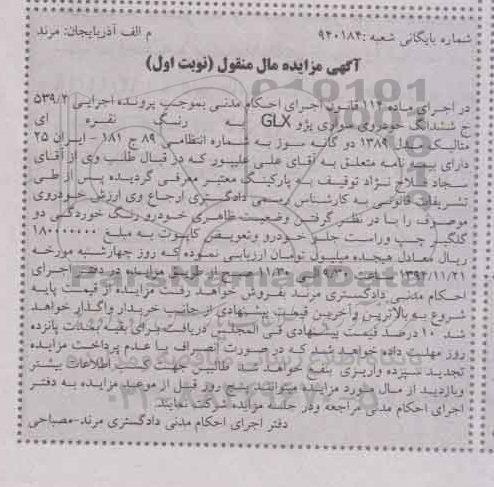 شماره بایگانی شعبه :۹۴۰۱۸۴ م الف آذربایجان: مرند
آگهی مزایده مال منقول (نوبت اول)
در اجرای ماده ۱۱۴ قانون اجرای احکام مدنی بموجب پرونده اجرایی ۵۳۹/۲
ج ششدانگ خودروی سواری پژو GLX به رنگ نقره ای
متالیک مدل ۱۳۸۹ دو گانه سوز به شماره انتظامی ۸۹ ج ۱۸۱ - ایران ۲۵
دارای بیمه نامه متعلق به آقای علی علیپور که در قبال طلب وی از آقای
سجاد فلاح نژاد توقیف به پارکینگ معتبر معرفی گردیده پس از طی
تشریفات قانونی به کارشناس رسمی دادگستری ارجاع وی ارزش خودروی
موصوف را با در نظر گرفتن وضعیت ظاهری خودرو رنگ خوردگی دو
گلگیر چپ وراست جلو خودرو وتعویض کاپوت به مبلغ ۱۸۰۰۰۰۰۰۰
ریال معادل هیجده میلیون تومان ارزیابی نموده که روز چهارشنبه مورخه
۱۳۹۴/۱۱/۲۱ ساعت ۱۰/۳۰ الی ۱۱/۳۰ صبح از طریق مزایده در دفتر اجرای
احکام مدنی دادگستری مرند بفروش خواهد رفت مزایده از قیمت پایه
شروع به بالاترین وآخرین قیمت پیشنهادی از جانب خریدار واگذار خواهد
شد ۱۰درصد قیمت پیشنهادی فی المجلس دریافت برای بقیه بمدت پانزده
روز مهلت داده خواهد شد که در صورت انصراف یا عدم پرداخت مزایده
تجدید سپرده واریزی بنفع خواهد شد طالبین جهت کسب اطلاعات بیشتر
وبازدید از مال مورد مزایده میتوانند پنج روز قبل از موعد مزایده به دفتر
اجرای احکام مدنی مراجعه ودر جلسه مزایده شرکت نمایند.
دفتر اجرای احکام مدنی دادگستری مرند-مصباحی
ParsNamadData